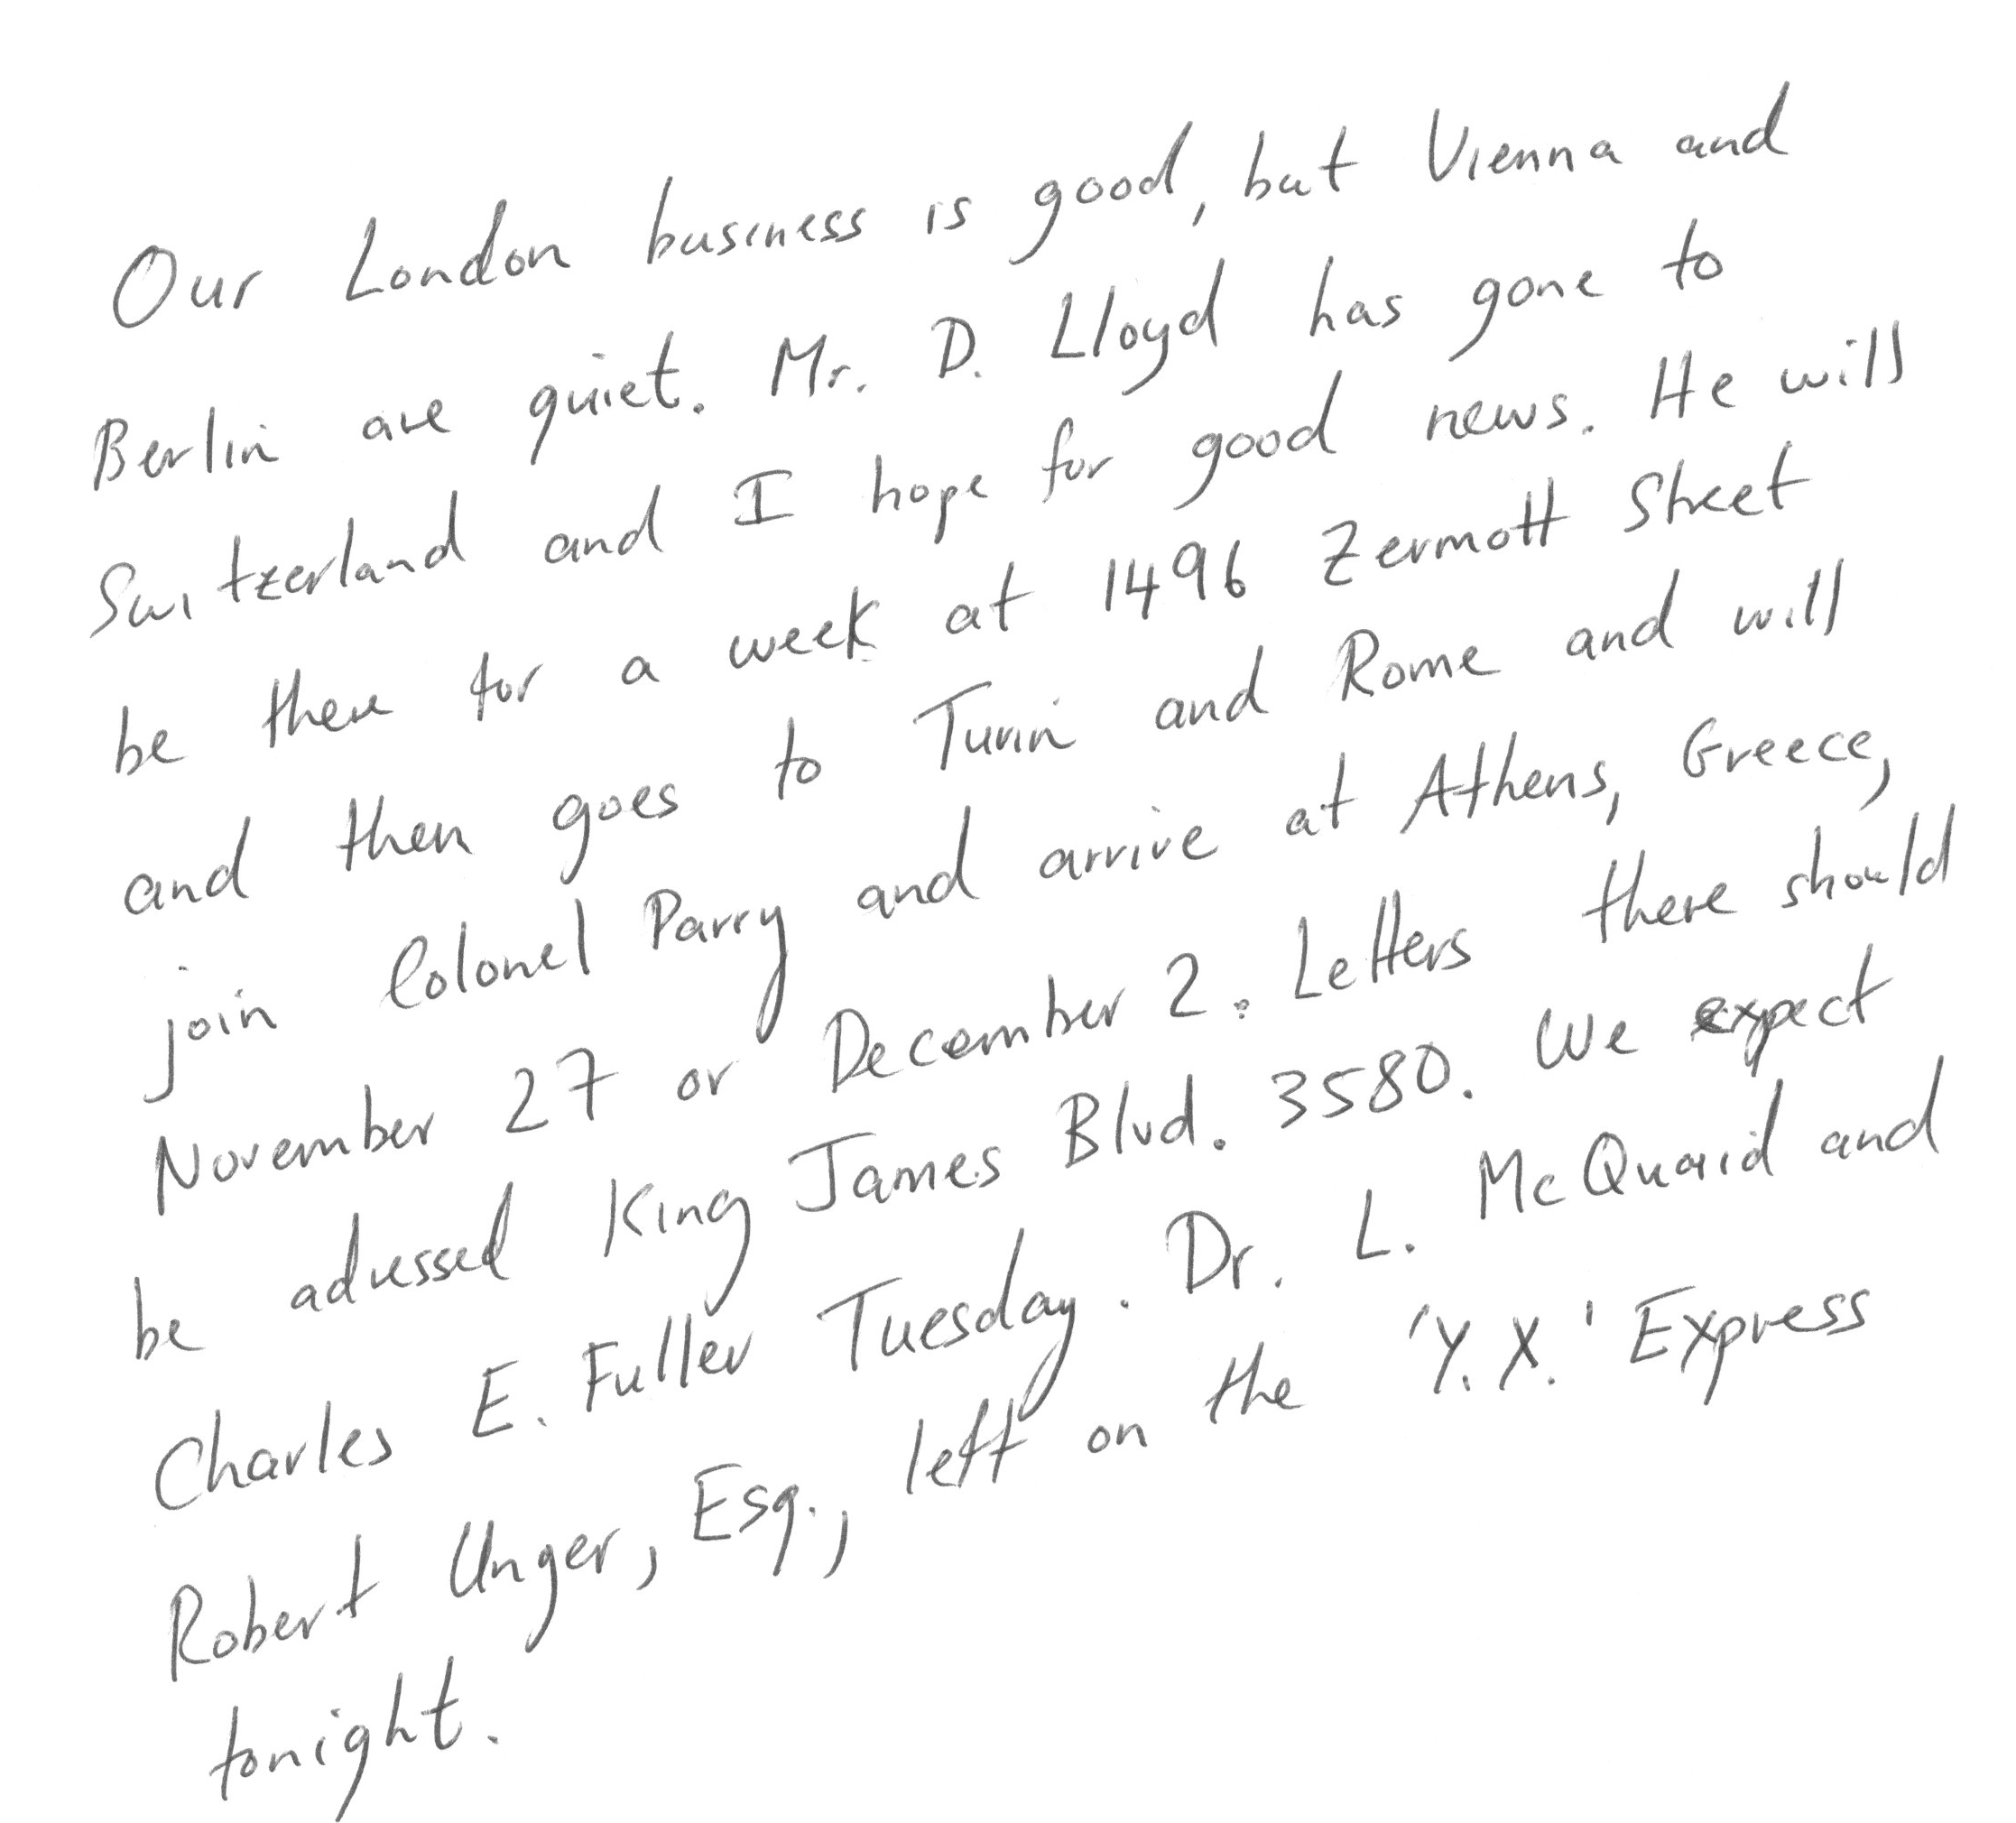 Our London business is good, but Vienna and
Berlin are quiet. Mr. D. Lloyd has gone to
Switzerland and I hope for good news. He will
be there for a week at 1496 Zermott Street
and then goes to Turin and Rome and will
join Colonel Parry and arrive at Athens, Greece,
November 27 or December 2. Letters there should
be adressed King James Blvd. 3580. We expect
Charles E. Fuller Tuesday. Dr. L. McQuaid and
Robert Unger, Esq., left on the 'Y.X.' Express
tonight.